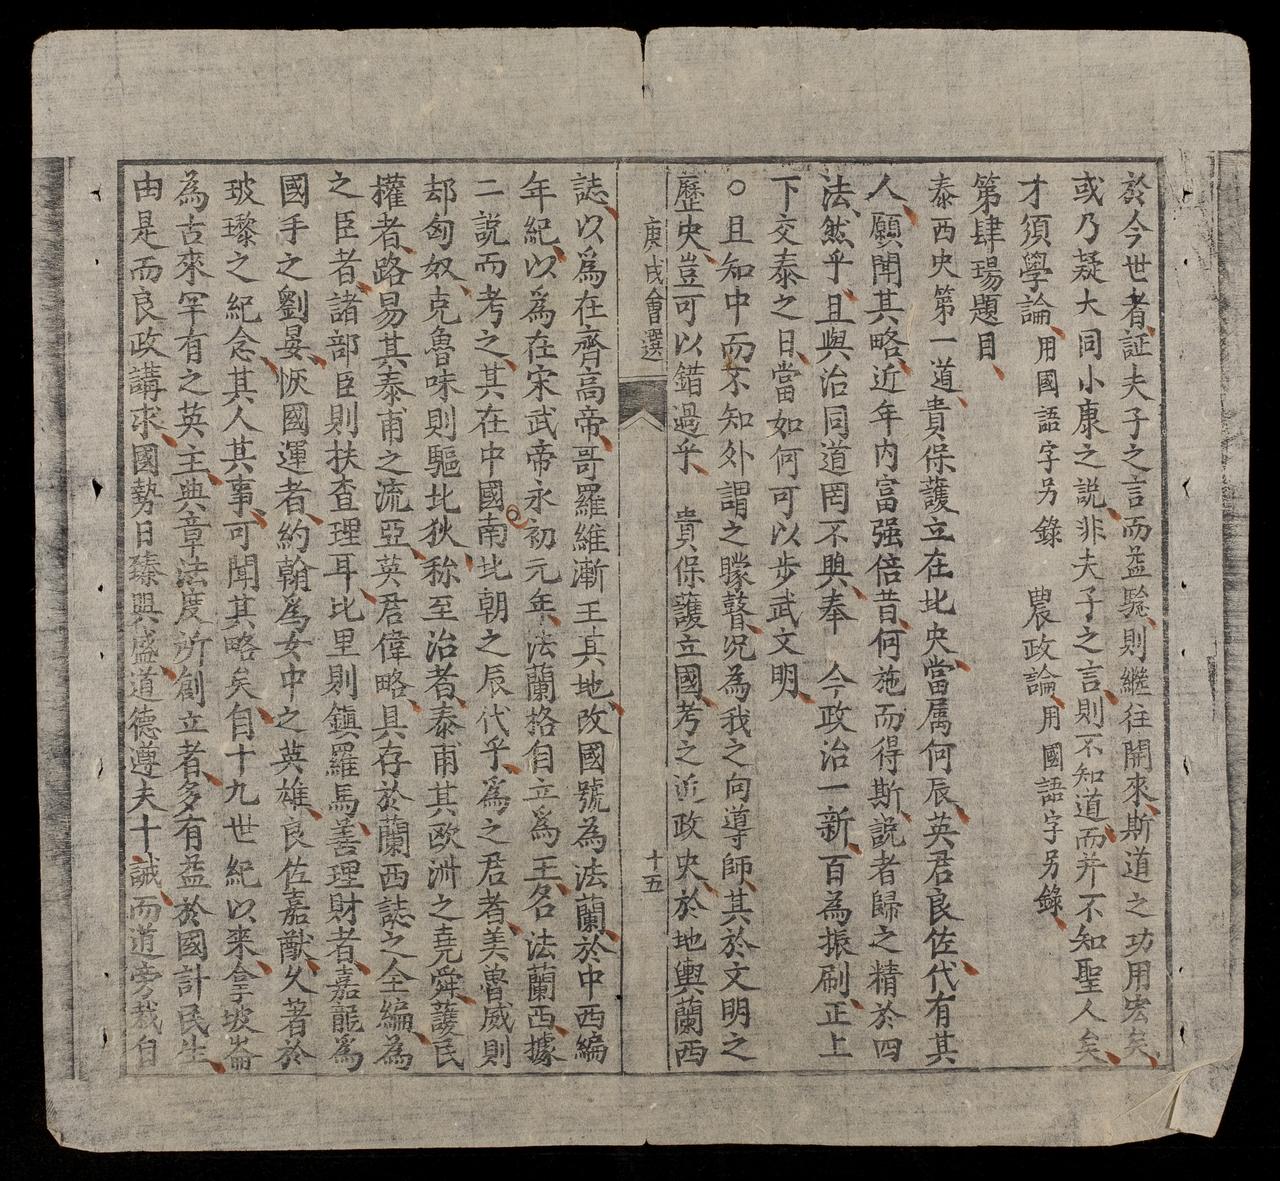 於今世者証夫子之言而益驗則繼往開來斯道之功用宏矣
或乃疑大同小康之説非夫子之言則不知道而并不知聖人矣
才須學論用國語字另錄　農政論用國語字另錄
第肆場題目
泰西史第一道貴保護立在此史當属何辰英君良佐代有其
人願聞其略近年內富强倍昔何施而得斯説者歸之精於四
法然乎且與治同道罔不興奉　今政治一新百為振刷正上
下交泰之日當如何可以步武文明
○且知中而不知外謂之矇瞽况為我之向導師其於文明之
歷史豈可以錯過乎　貴保護立國考之近政史於地輿蘭西
庚戌會選　十五
誌以爲在齊高帝哥羅維漸王其地改國號為法蘭於中西編
年紀以為在宋武帝永初元年法蘭格自立爲王名法蘭西據
二説而考之其在中國南北朝之辰代乎爲之君者美曾威則
却匈奴克魯味則驅比狄称至治者泰甫其歐洲之堯舜護民
權者路易其泰甫之流亞英君偉略具存於蘭西誌之全編為
之臣者諸部臣則扶查理耳比里則鎮羅馬善理財者嘉龍爲
國手之劉晏恢國運者約翰爲女中之英雄良佐嘉猷久著於
玻瓈之紀念其人其事可聞其略矣自十九世紀以来拿坡崙
為古來罕有之英主典章法度所創立者多有益於國計民生
由是而良政講求國勢日臻興盛道德遵夫十誡而道旁栽自